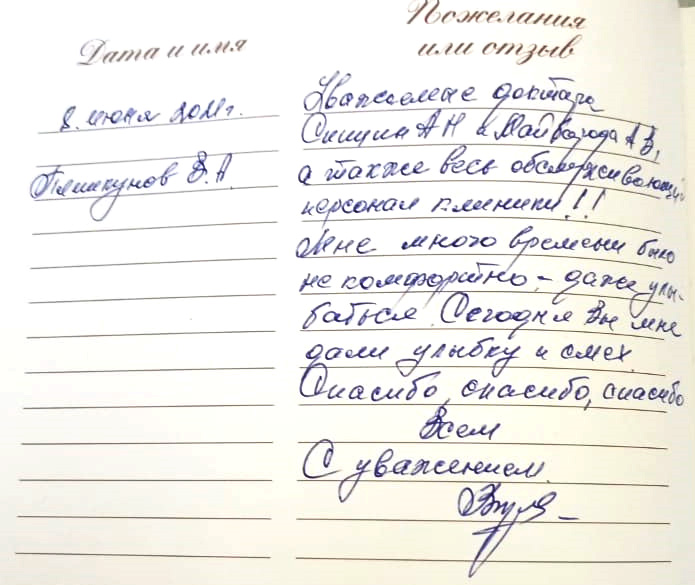 Дата и имя
Пожелания
или отзыв
8. июня 2021г.
В.А.
Уважаемые доктара
А Н и А В,
а также весь обслуживающий
персонал клиники!!!
Мне много времени было
не комфортно - даже улы-
баться. Сегодня Вы мне
дали улыбку и смех.
Спасибо, спасибо, спасибо
Всем
С уважением.